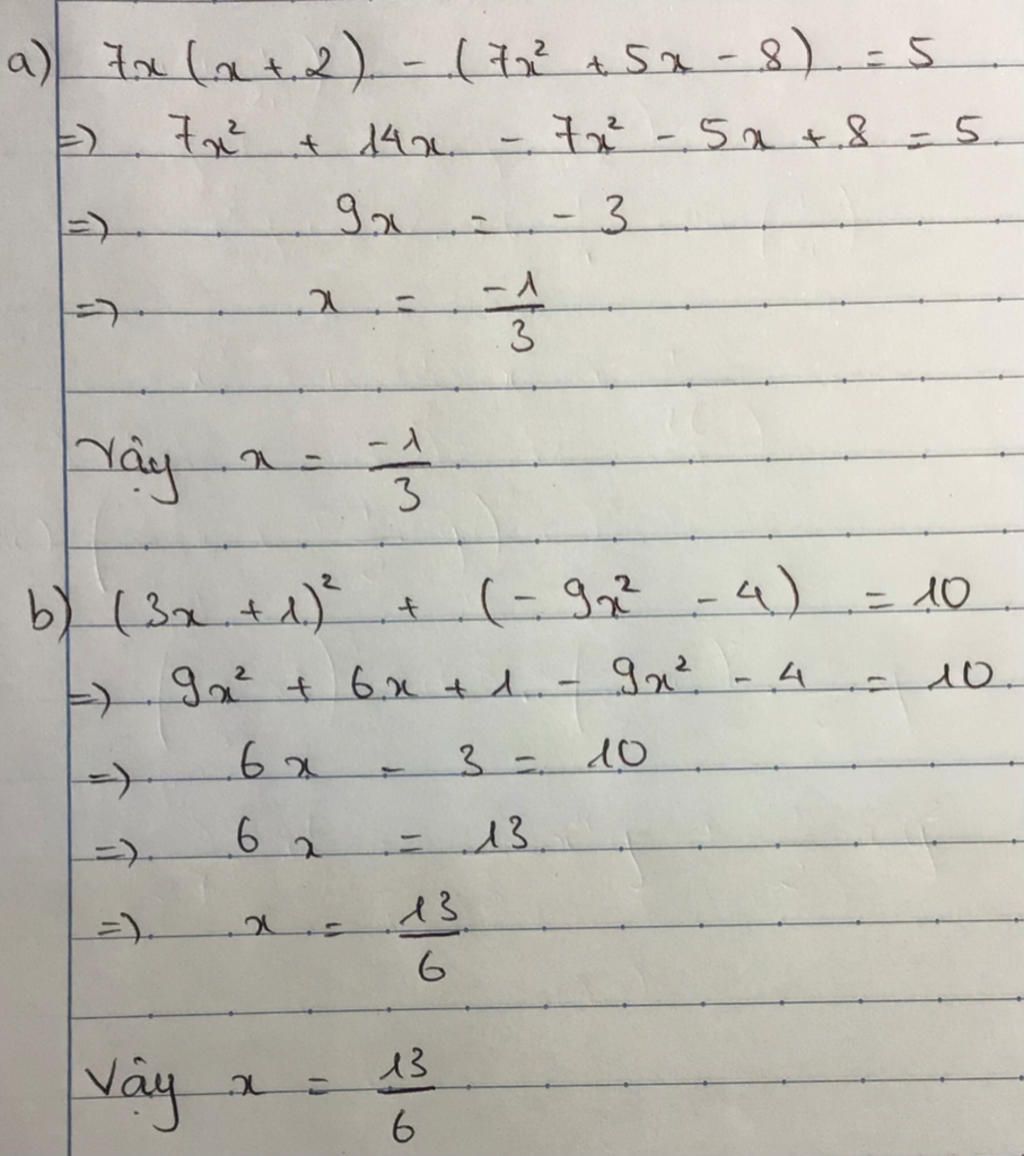 a) 7x (x + 2) - (7x² + 5x - 8) = 5
=> 7x² + 14x - 7x² - 5x + 8 = 5
=> 9x = - 3
=> x = -1/3
Vậy x = -1/3
b) (3x + 1)² + (- 9x² - 4) = 10
=> 9x² + 6x + 1 - 9x² - 4 = 10
=> 6x - 3 = 10
=> 6x = 13
=> x = 13/6
Vậy x = 13/6